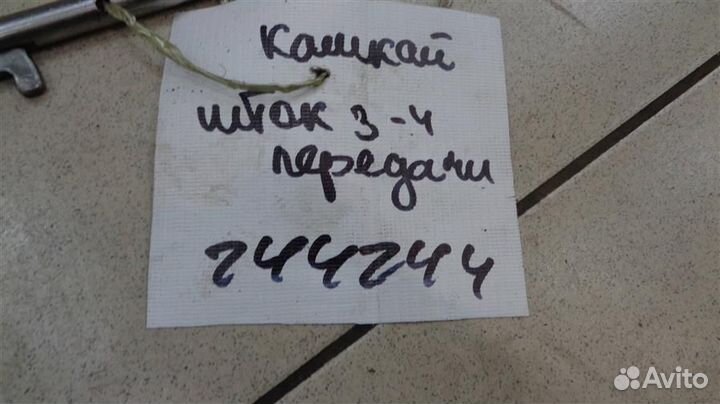 Кашкай
шток 3-4
передачи
244244
Avito